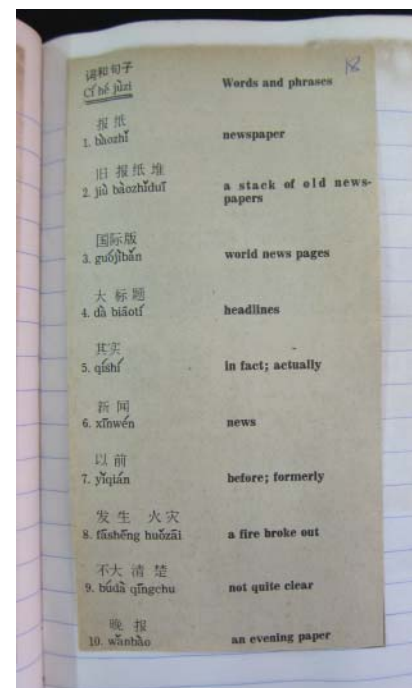 18
词和句子
Cí hé jùzi Words and phrases
报纸
1. bàozhǐ newspaper
旧报纸堆
2. jiù bàozhǐduī a stack of old news-
papers
国际版
3. guójìbǎn world news pages
大标题
4. dà biāotí headlines
其实
5. qíshí in fact; actually
新闻
6. xīnwén news
以前
7. yǐqián before; formerly
发生 火灾
8. fāshēng huǒzāi a fire broke out
不大清楚
9. búdà qīngchu not quite clear
晚报
10. wǎnbào an evening paper